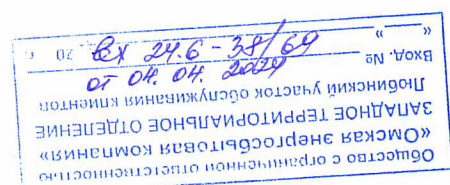 Общество с ограниченной ответственностью
«Омская энергосбытовая компания»
ЗАПАДНОЕ ТЕРРИТОРИАЛЬНОЕ ОТДЕЛЕНИЕ
Любинский участок обслуживания клиентов
Вход. №
« » 20 г.
Вх 24.6-38/69
от 04.04.2024